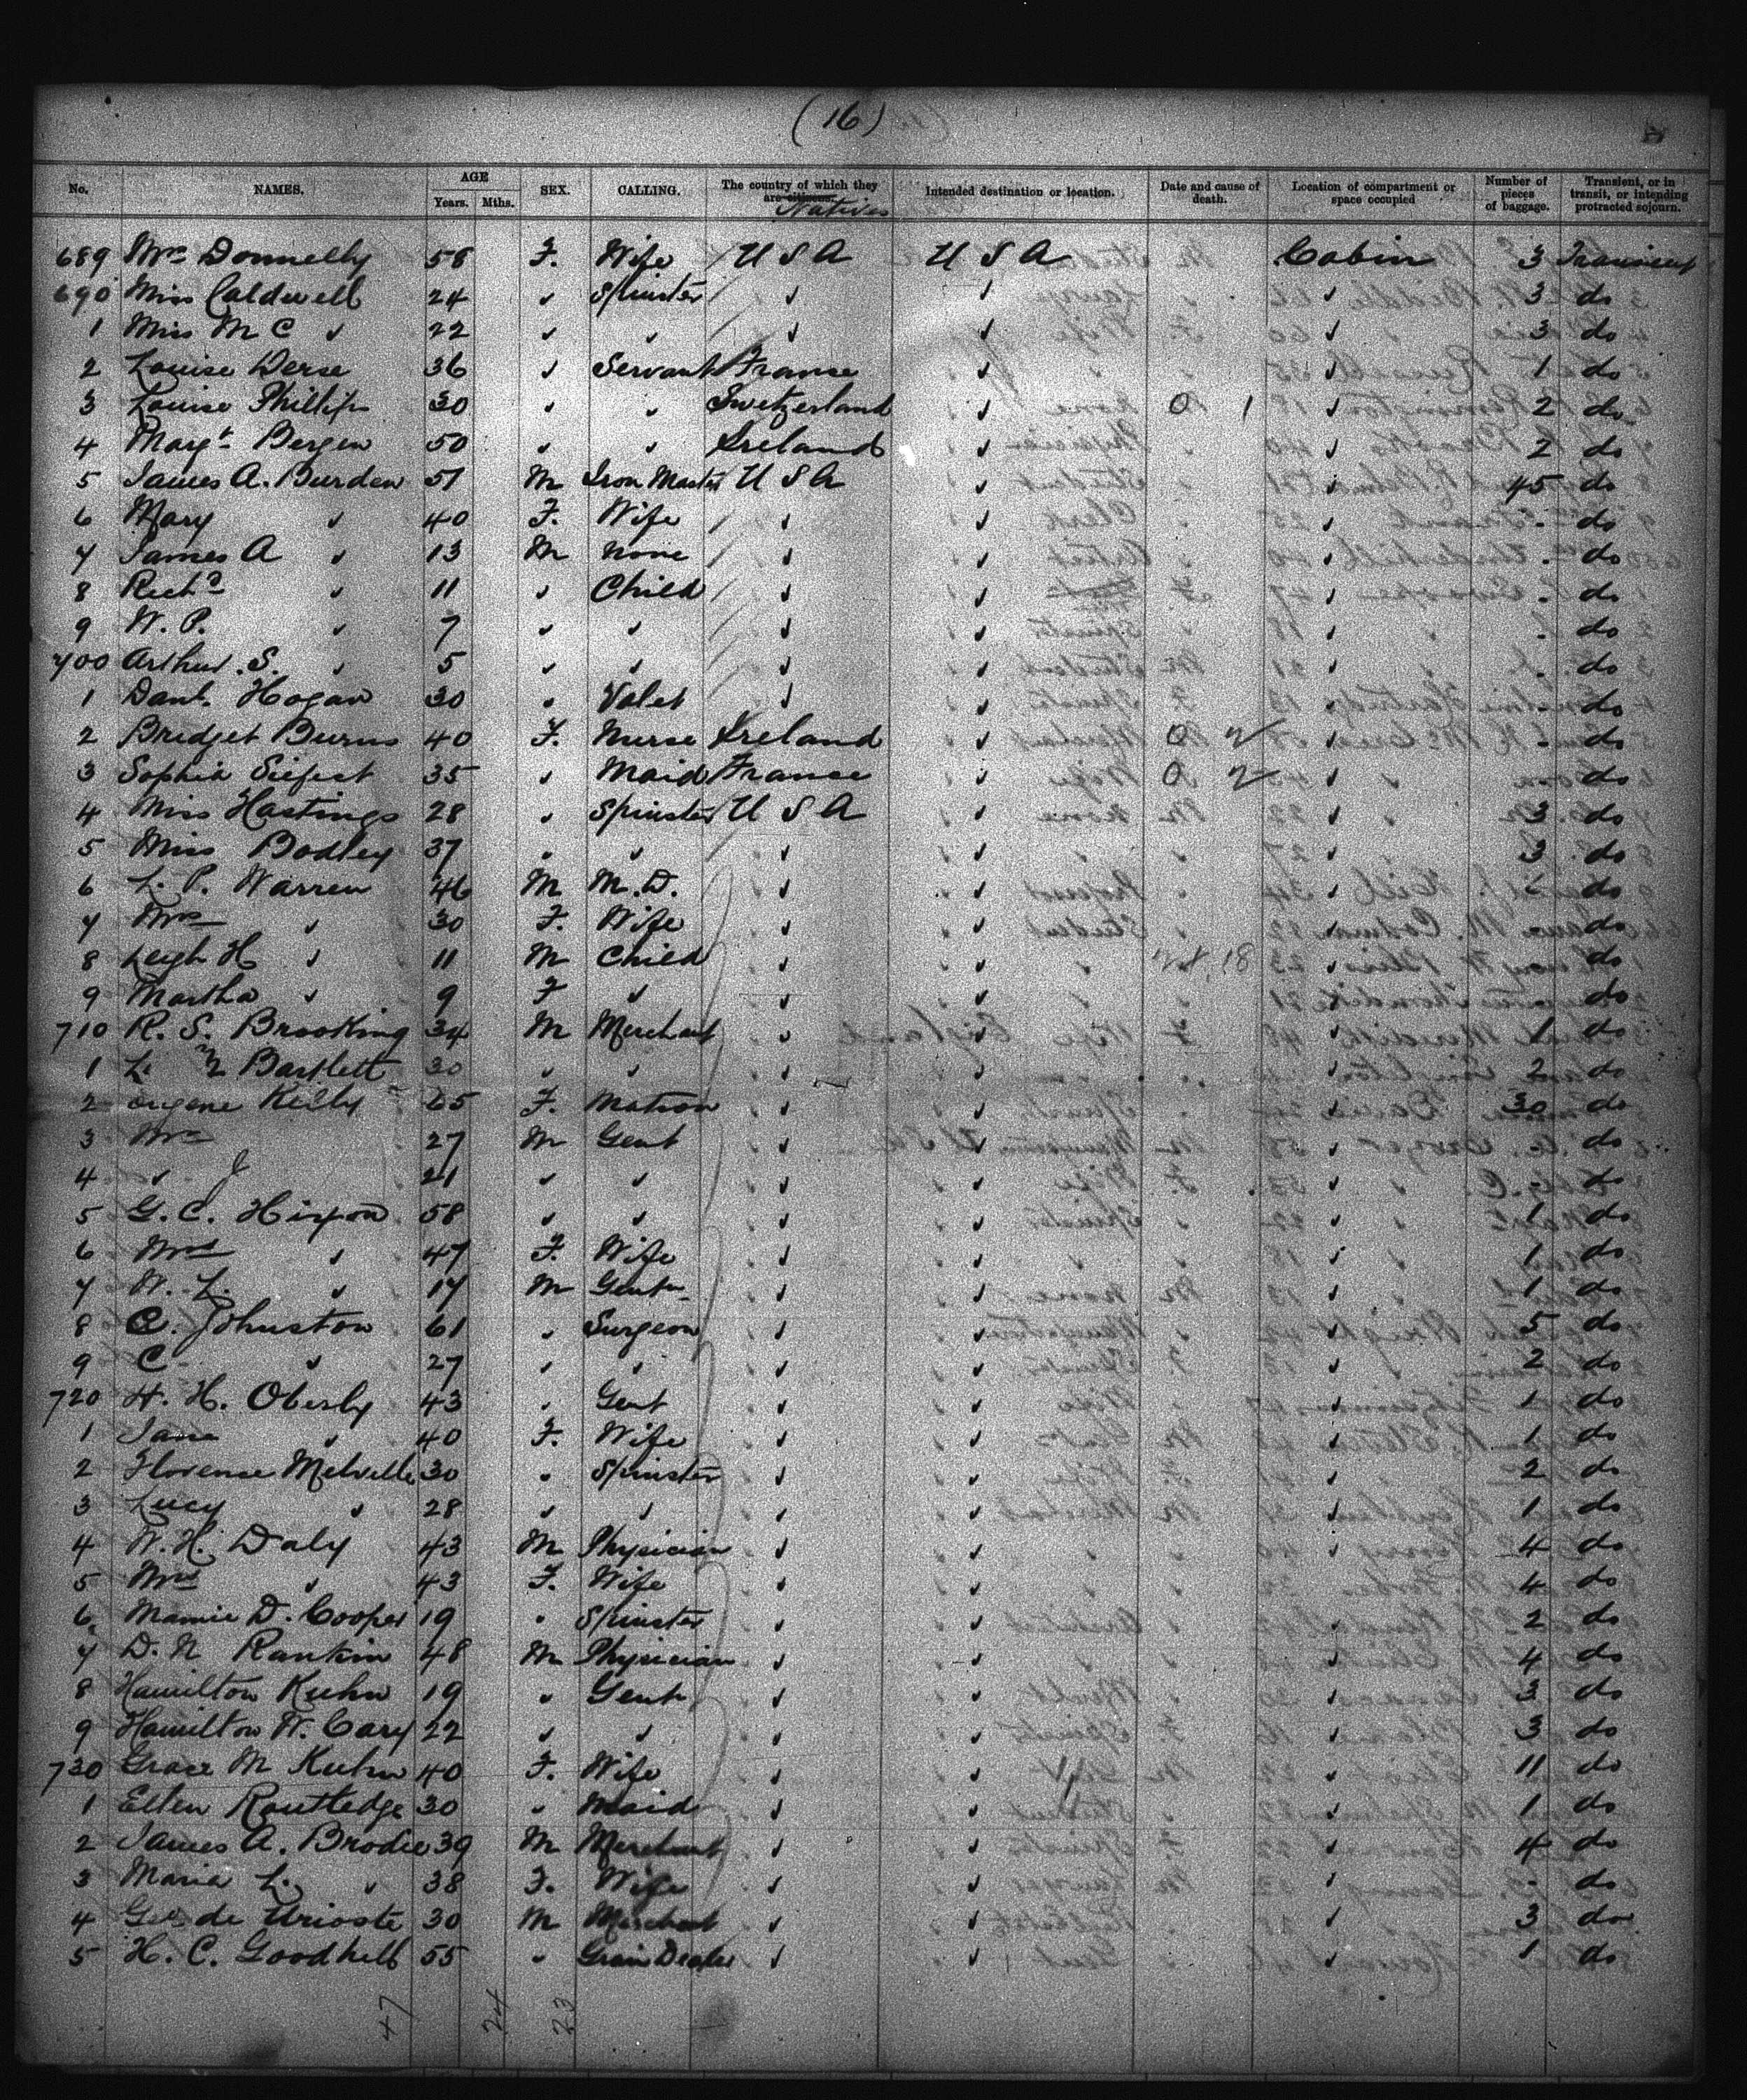 (16)
No. NAMES. AGE Years. Mths. SEX. CALLING. The country of which they are citizens. Natives Intended destination or location. Date and cause of death. Location of compartment or space occupied Number of pieces of baggage. Transient, or in transit, or intending protracted sojourn.
689 Mrs Donnelly 58 F. Wife U S A U S A Cabin 3 Transient
690 Miss Caldwell 24 " Spinster " " " 3 do
1 Miss M C " 22 " " " " " 3 do
2 Louise Derse 36 " Servant France " " 1 do
3 Louise Phillips 30 " " Switzerland " 0 1 " 2 do
4 Margt Bergen 50 " " Ireland " " 2 do
5 James A. Burden 51 M Iron Master U S A " " 45 do
6 Mary " 40 F. Wife " " " . do
7 James A " 13 M none " " " . do
8 Richd " 11 " Child " " " . do
9 W. P. " 7 " " " " " . do
700 Arthur S. " 5 " " " " " . do
1 Danl. Hogan 30 " Valet " " " . do
2 Bridget Burns 40 F. Nurse Ireland " 0 2 " . do
3 Sophia Siefert 35 " Maid France " 0 2 " . do
4 Miss Hastings 28 " Spinster U S A " " 3 do
5 Miss Bodley 37 " " " " " 3 do
6 L. P. Warren 46 M M.D. " " " do
7 Mrs " 30 F. Wife " " " do
8 Leigh H " 11 M Child " " 18 " do
9 Martha " 9 F " " " " do
710 R. S. Brooking 34 M Merchant " " " 1 do
1 L. Bartlett 30 " " " " " 2 do
2 Eugene Kelly 65 F. Matron " " " 30 do
3 27 M Gent " " " do
4 " J 21 " " " " " do
5 G. C. Hixon 58 " " " " " 1 do
6 Mrs " 47 F. Wife " " " 1 do
7 W. L. " 17 M Gentn " " " 1 do
8 C. Johnston 61 " Surgeon " " " 5 do
9 C " 27 " " " " " 2 do
720 H. H. Oberly 43 " Gent " " " 1 do
1 Jane " 40 F. Wife " " " 1 do
2 Florence Melville 30 " Spinster " " " 2 do
3 Lucy " 28 " " " " " 1 do
4 W. H. Daly 43 M Physician " " " 4 do
5 Mrs " 43 F. Wife " " " 4 do
6 Mamie D. Cooper 19 " Spinster " " " 2 do
7 D. N Rankin 48 M Physician " " " 4 do
8 Hamilton Kuhn 19 " Gent " " " 3 do
9 Hamilton W. Cary 22 " " " " " 3 do
730 Grace M Kuhn 40 F. Wife " " " 11 do
1 Ellen Routledge 30 " Maid " " " 1 do
2 James A. Brodie 39 M Merchant " " " 4 do
3 Maria L. " 38 F. Wife " " " . do
4 de Urioste 30 M Merchant " " " 3 do
5 H. C. Goodhell 55 " Grain Dealer " " " 1 do
47 24 23